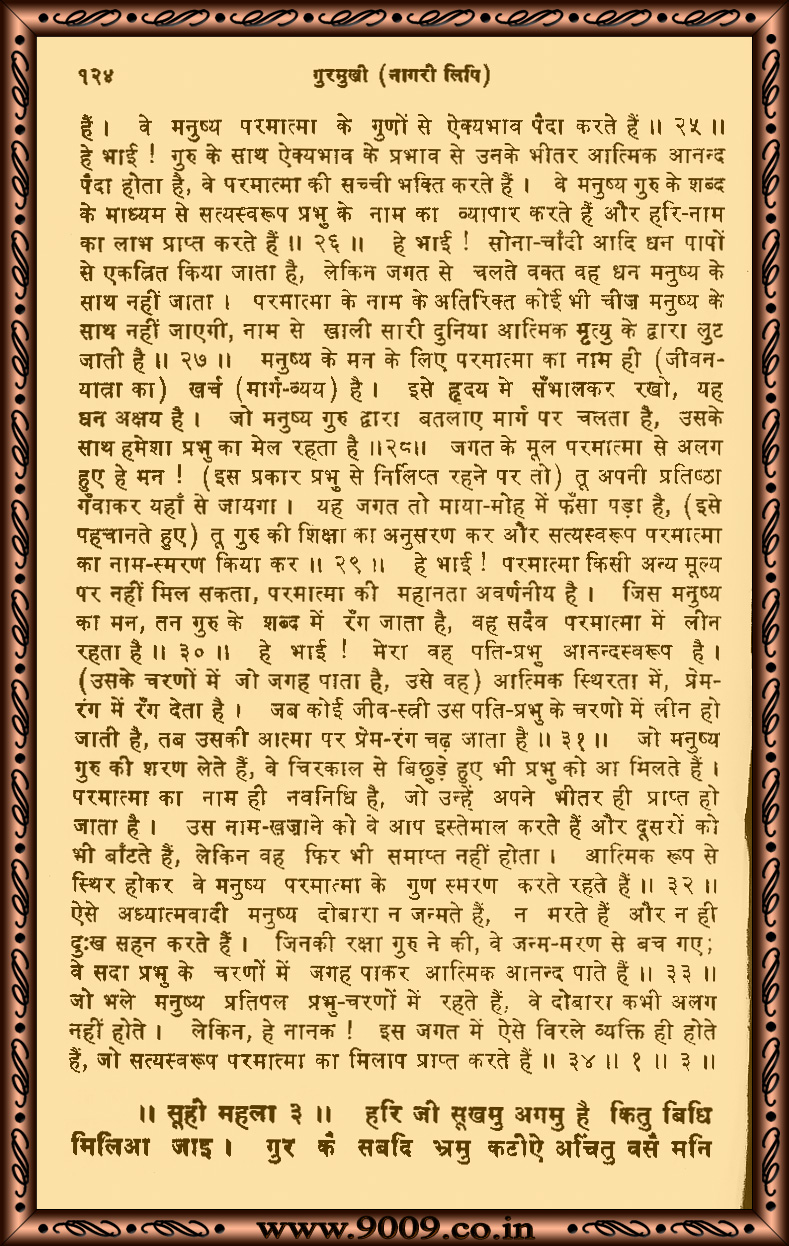 १२४ गुरमुखी (नागरी लिपि)
हैं । वे मनुष्य परमात्मा के गुणों से ऐक्यभाव पैदा करते हैं ॥ २५ ॥
हे भाई ! गुरु के साथ ऐक्यभाव के प्रभाव से उनके भीतर आत्मिक आनन्द
पैदा होता है, वे परमात्मा की सच्ची भक्ति करते हैं । वे मनुष्य गुरु के शब्द
के माध्यम से सत्यस्वरूप प्रभु के नाम का व्यापार करते हैं और हरि-नाम
का लाभ प्राप्त करते हैं ॥ २६ ॥ हे भाई ! सोना-चाँदी आदि धन पापों
से एकत्रित किया जाता है, लेकिन जगत से चलते वक्त वह धन मनुष्य के
साथ नहीं जाता । परमात्मा के नाम के अतिरिक्त कोई भी चीज़ मनुष्य के
साथ नहीं जाएगी, नाम से खाली सारी दुनिया आत्मिक मृत्यु के द्वारा लुट
जाती है ॥ २७ ॥ मनुष्य के मन के लिए परमात्मा का नाम ही (जीवन-
यात्रा का) खर्च (मार्ग-व्यय) है । इसे हृदय मे सँभालकर रखो, यह
धन अक्षय है । जो मनुष्य गुरु द्वारा बतलाए मार्ग पर चलता है, उसके
साथ हमेशा प्रभु का मेल रहता है ॥२८॥ जगत के मूल परमात्मा से अलग
हुए हे मन ! (इस प्रकार प्रभु से निर्लिप्त रहने पर तो) तू अपनी प्रतिष्ठा
गँवाकर यहाँ से जायगा । यह जगत तो माया-मोह में फँसा पड़ा है, (इसे
पहचानते हुए) तू गुरु की शिक्षा का अनुसरण कर और सत्यस्वरूप परमात्मा
का नाम-स्मरण किया कर ॥ २९ ॥ हे भाई ! परमात्मा किसी अन्य मूल्य
पर नहीं मिल सकता, परमात्मा की महानता अवर्णनीय है । जिस मनुष्य
का मन, तन गुरु के शब्द में रँग जाता है, वह सदैव परमात्मा में लीन
रहता है ॥ ३० ॥ हे भाई ! मेरा वह पति-प्रभु आनन्दस्वरूप है ।
(उसके चरणों में जो जगह पाता है, उसे वह) आत्मिक स्थिरता में, प्रेम-
रंग में रँग देता है । जब कोई जीव-स्त्री उस पति-प्रभु के चरणो में लीन हो
जाती है, तब उसकी आत्मा पर प्रेम-रंग चढ़ जाता है ॥ ३१ ॥ जो मनुष्य
गुरु की शरण लेते हैं, वे चिरकाल से बिछुड़े हुए भी प्रभु को आ मिलते हैं ।
परमात्मा का नाम ही नवनिधि है, जो उन्हें अपने भीतर ही प्राप्त हो
जाता है । उस नाम-खज़ाने को वे आप इस्तेमाल करते हैं और दूसरों को
भी बाँटते हैं, लेकिन वह फिर भी समाप्त नहीं होता । आत्मिक रूप से
स्थिर होकर वे मनुष्य परमात्मा के गुण स्मरण करते रहते हैं ॥ ३२ ॥
ऐसे अध्यात्मवादी मनुष्य दोबारा न जन्मते हैं, न मरते हैं और न ही
दुःख सहन करते हैं । जिनकी रक्षा गुरु ने की, वे जन्म-मरण से बच गए;
वे सदा प्रभु के चरणों में जगह पाकर आत्मिक आनन्द पाते हैं ॥ ३३ ॥
जो भले मनुष्य प्रतिपल प्रभु-चरणों में रहते हैं, वे दोबारा कभी अलग
नहीं होते । लेकिन, हे नानक ! इस जगत में ऐसे विरले व्यक्ति ही होते
हैं, जो सत्यस्वरूप परमात्मा का मिलाप प्राप्त करते हैं ॥ ३४ ॥ १ ॥ ३ ॥
॥ सूही महला ३ ॥ हरि जी सूखमु अगमु है कितु बिधि
मिलिआ जाइ । गुर कै सबदि भ्रमु कटीऐ अचिंतु वसै मनि
www.9009.co.in